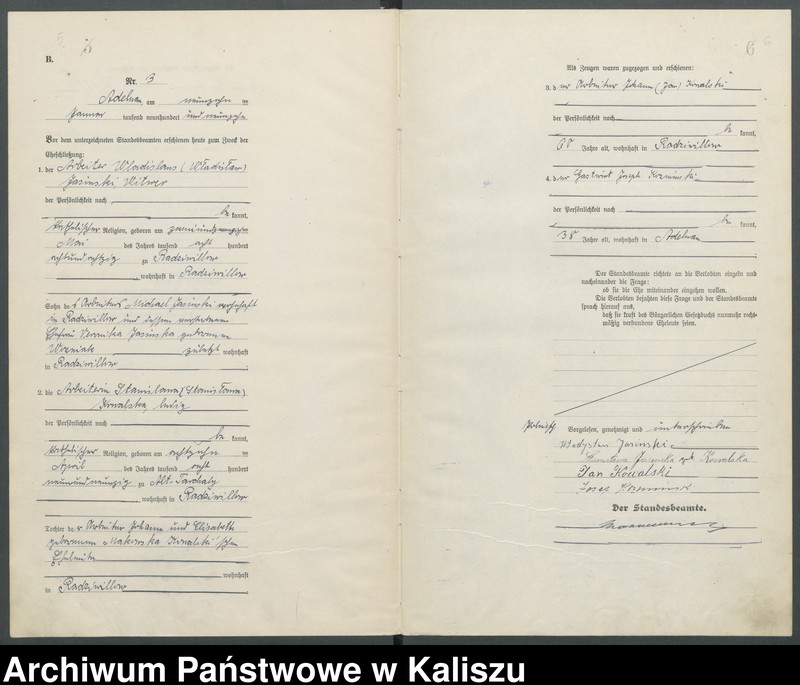 B.
Nr. 3
Adelnau am neunzehn ten
Januar tausend neunhundert und neunzehn
Vor dem unterzeichneten Standesbeamten erschienen heute zum Zweck der
Eheschließung:
1. der Arbeiter Wladislaus (Władisław)
Jasinski Witwer
der Persönlichkeit nach
be kannt,
katholischer Religion, geboren am
Mai des Jahres tausend acht hundert
achtundachtzig zu Radziwillow
, wohnhaft in Radziwillow
Sohn des Arbeiters Michael Jasinski
in Radziwillow und dessen
Ehefrau Veronika Jasinska geborenen
Wozniak zuletzt wohnhaft
in Radziwillow
2. die Arbeiterin Stanislawa (Stanisława)
Kowalska, ledig
der Persönlichkeit nach
be kannt,
katholischer Religion, geboren am achtzehn ten
April des Jahres tausend acht hundert
neunundneunzig zu Alt-Parchaty
, wohnhaft in Radziwillow
Tochter der Arbeiter Johann und Elisabeth
geborenen Makowska Kowalski'schen
Eheleute
wohnhaft
in Radziwillow
6
Als Zeugen waren zugezogen und erschienen:
3. der Arbeiter Johann (Jan) Kowalski
der Persönlichkeit nach
be kannt,
60 Jahre alt, wohnhaft in Radziwillow
4. der Gastwirt Joseph
der Persönlichkeit nach
be kannt,
38 Jahre alt, wohnhaft in Adelnau
Der Standesbeamte richtete an die Verlobten einzeln und
nacheinander die Frage:
ob sie die Ehe miteinander eingehen wollen.
Die Verlobten bejahten diese Frage und der Standesbeamte
sprach hierauf aus,
daß sie kraft des Bürgerlichen Gesetzbuchs nunmehr recht-
mäßig verbundene Eheleute seien.
Vorgelesen, genehmigt und unterschrieben
Władysław Jasinski
Jasinska geb Kowalska
Jan Kowalski
Josef
Der Standesbeamte.
Archiwum Państwowe w Kaliszu